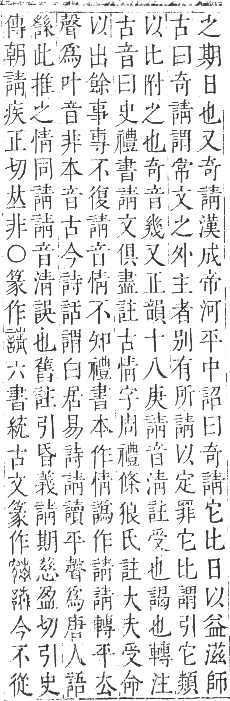 之期日也又奇請漢成帝河平中詔曰奇請它比日以益滋師
古曰奇請謂常文之外主者别有所請以定罪它比謂引它類
以比附之也奇音幾又正韻十八庚請音清註受也謁也轉注
古音曰史禮書請文俱盡註古情字周禮條狼氏註大夫受命
以出餘事專不復請音情不知禮書本作情譌作請請轉平厺
聲爲叶音非本音古今詩話謂白居易詩請讀平聲爲唐人語
繇此推之情同請請音清誤也舊註引昏義請期慈盈切引史
傳朝請疾正切𠀤非○篆作請六書統古文篆作今不從